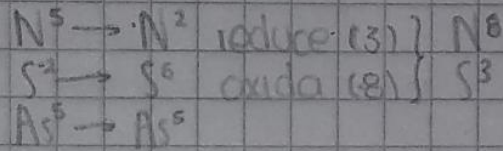 N⁵ → N² reduce (3) } N⁸
S⁻² → S⁶ oxida (8) } S³
As⁵ → As⁵